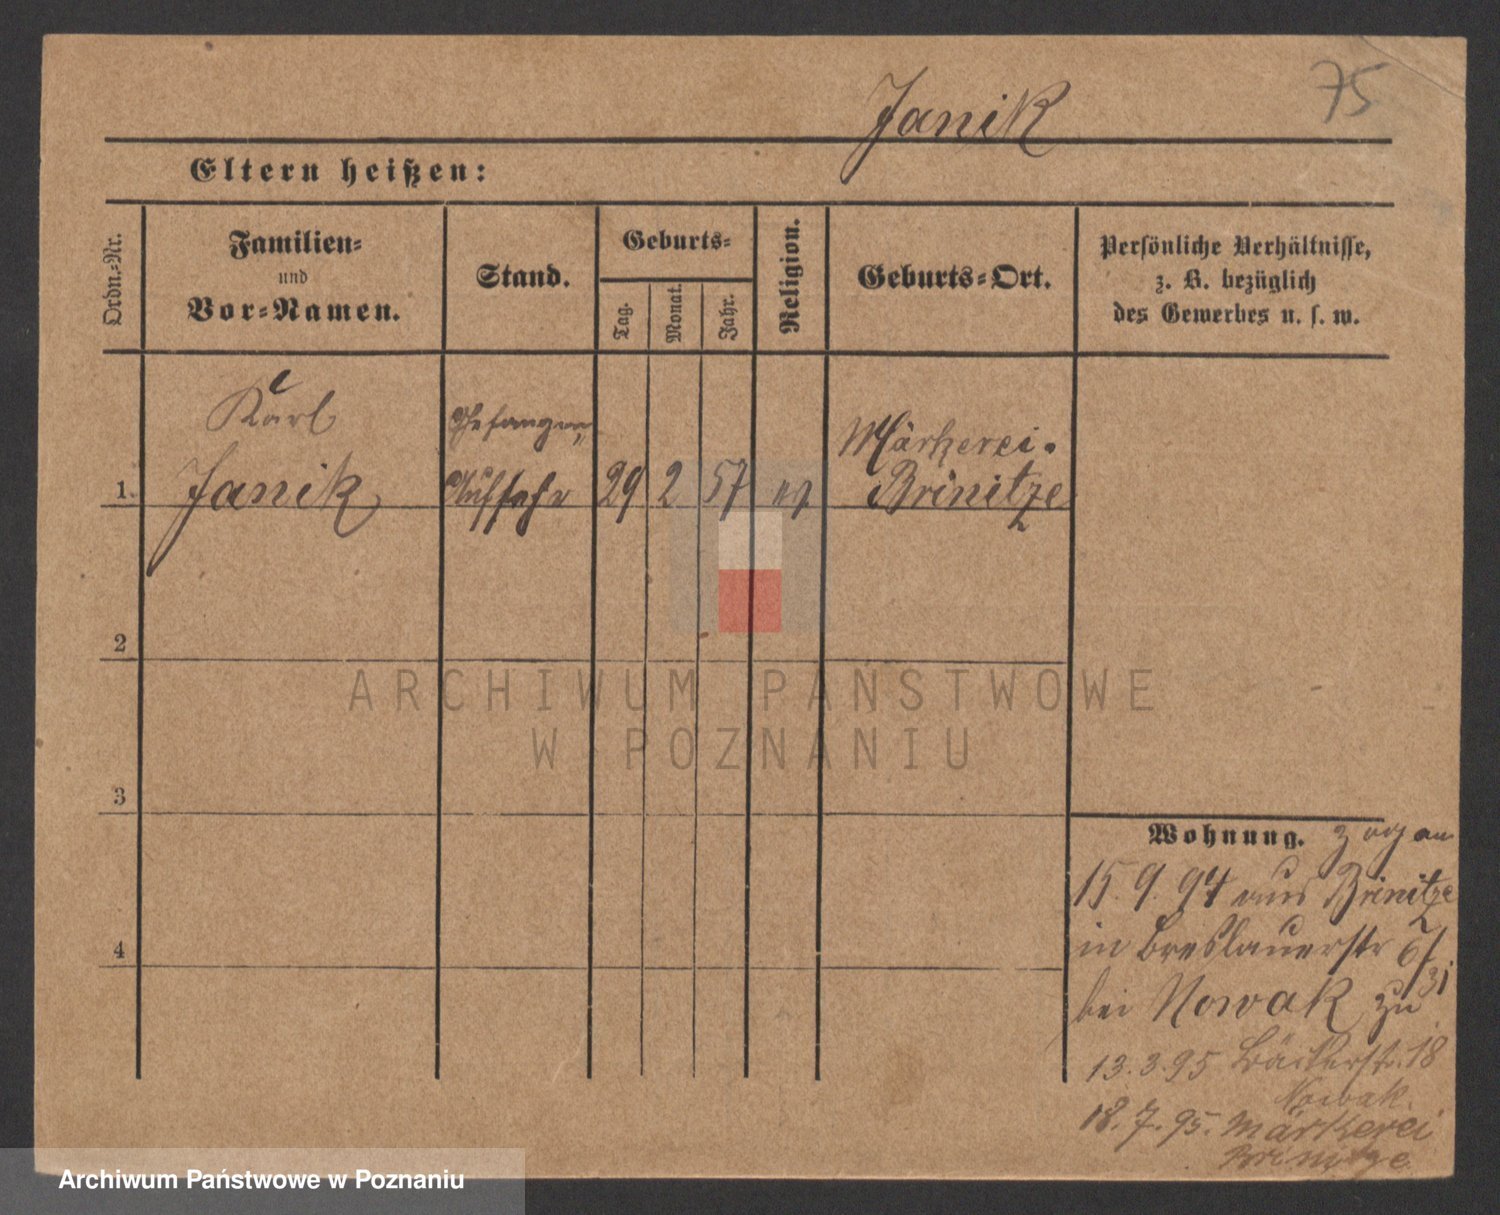 75
Janik
Eltern heißen:
Ordn.-Nr.
Familien-
und
Vor-Namen.
Stand.
Geburts-
Tag.
Monat.
Jahr.
Religion.
Geburts-Ort.
Persönliche Verhältnisse,
z. B. bezüglich
des Gewerbes u. s. w.
Karl
Gefangen
Märkerei.
1. Janik Aufsehr 29 2 57 Brinitze
2
3
4
ARCHIWUM PAŃSTWOWE
W POZNANIU
Wohnung. zog am
15. 9. 94 aus Brinitze
in Breslauerstr 6/
31
bei Nowak zu
13. 3. 95 Bäckerstr. 18
Nowak.
18. 7. 95. Märkerei
Brinitze
Archiwum Państwowe w Poznaniu